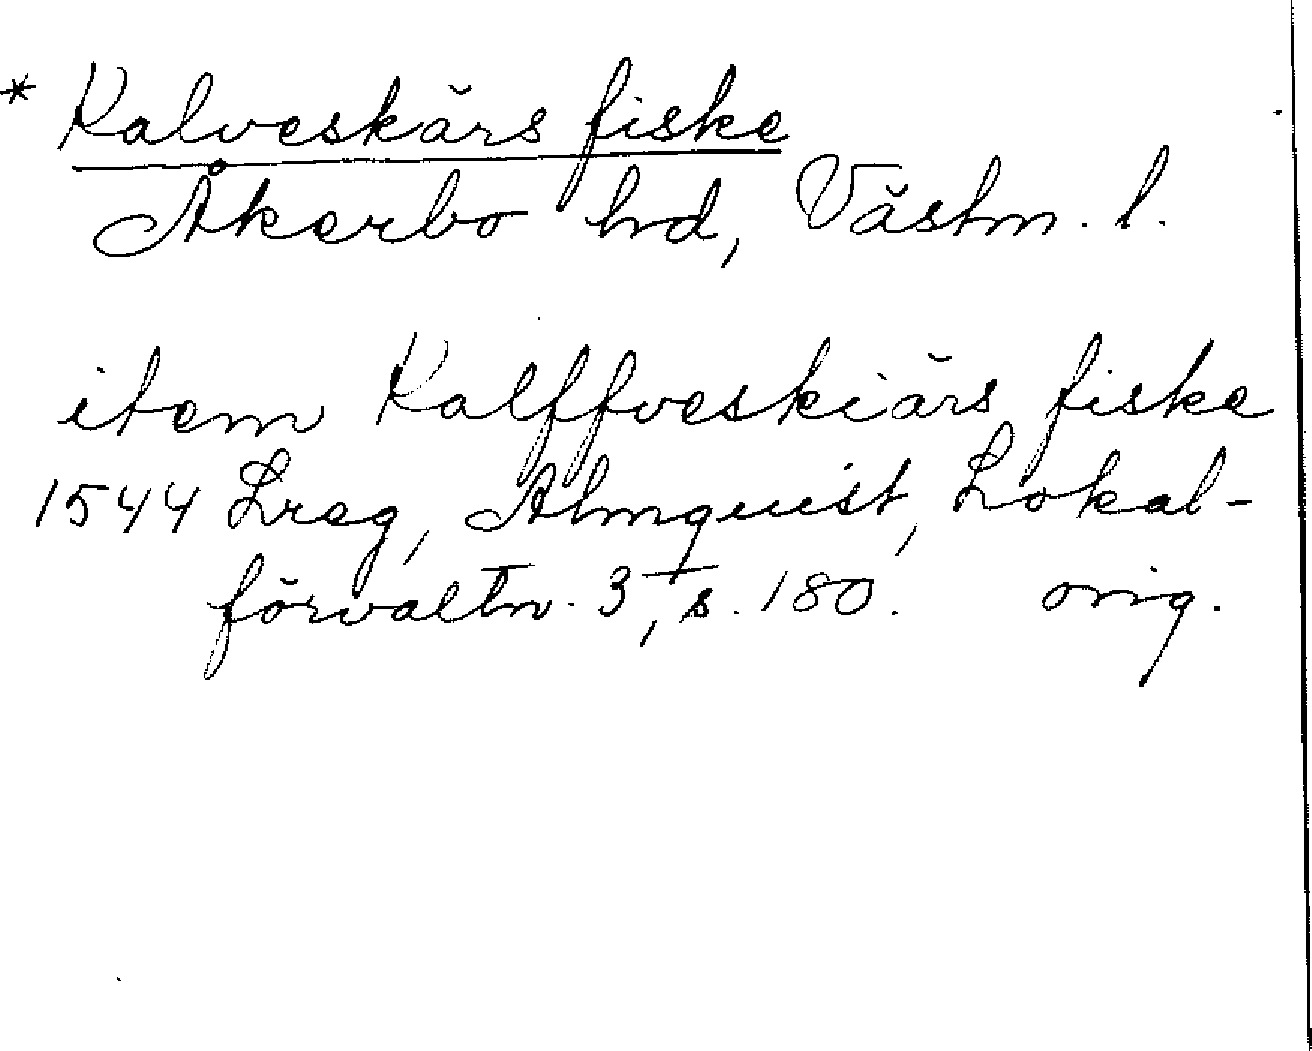 * Kalveskärs fiske
Åkerbo hd, Västm. l.
item Kalffveskiärs fiske
1544 Lreg, Almquist, Lokal-
förvaltn. 3, s. 180. orig.